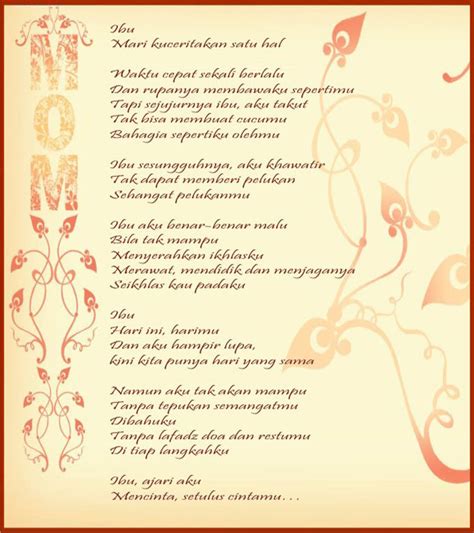 MOM
Ibu
Mari kuceritakan satu hal
Waktu cepat sekali berlalu
Dan rupanya membawaku sepertimu
Tapi sejujurnya ibu, aku takut
Tak bisa membuat cucumu
Bahagia sepertiku olehmu
Ibu sesungguhnya, aku khawatir
Tak dapat memberi pelukan
Sehangat pelukanmu
Ibu aku benar-benar malu
Bila tak mampu
Menyerahkan ikhlasku
Merawat, mendidik dan menjaganya
Seikhlas kau padaku
Ibu
Hari ini, harimu
Dan aku hampir lupa,
kini kita punya hari yang sama
Namun aku tak akan mampu
Tanpa tepukan semangatmu
Dibahuku
Tanpa lafadz doa dan restumu
Di tiap langkahku
Ibu, ajari aku
Mencinta, setulus cintamu...